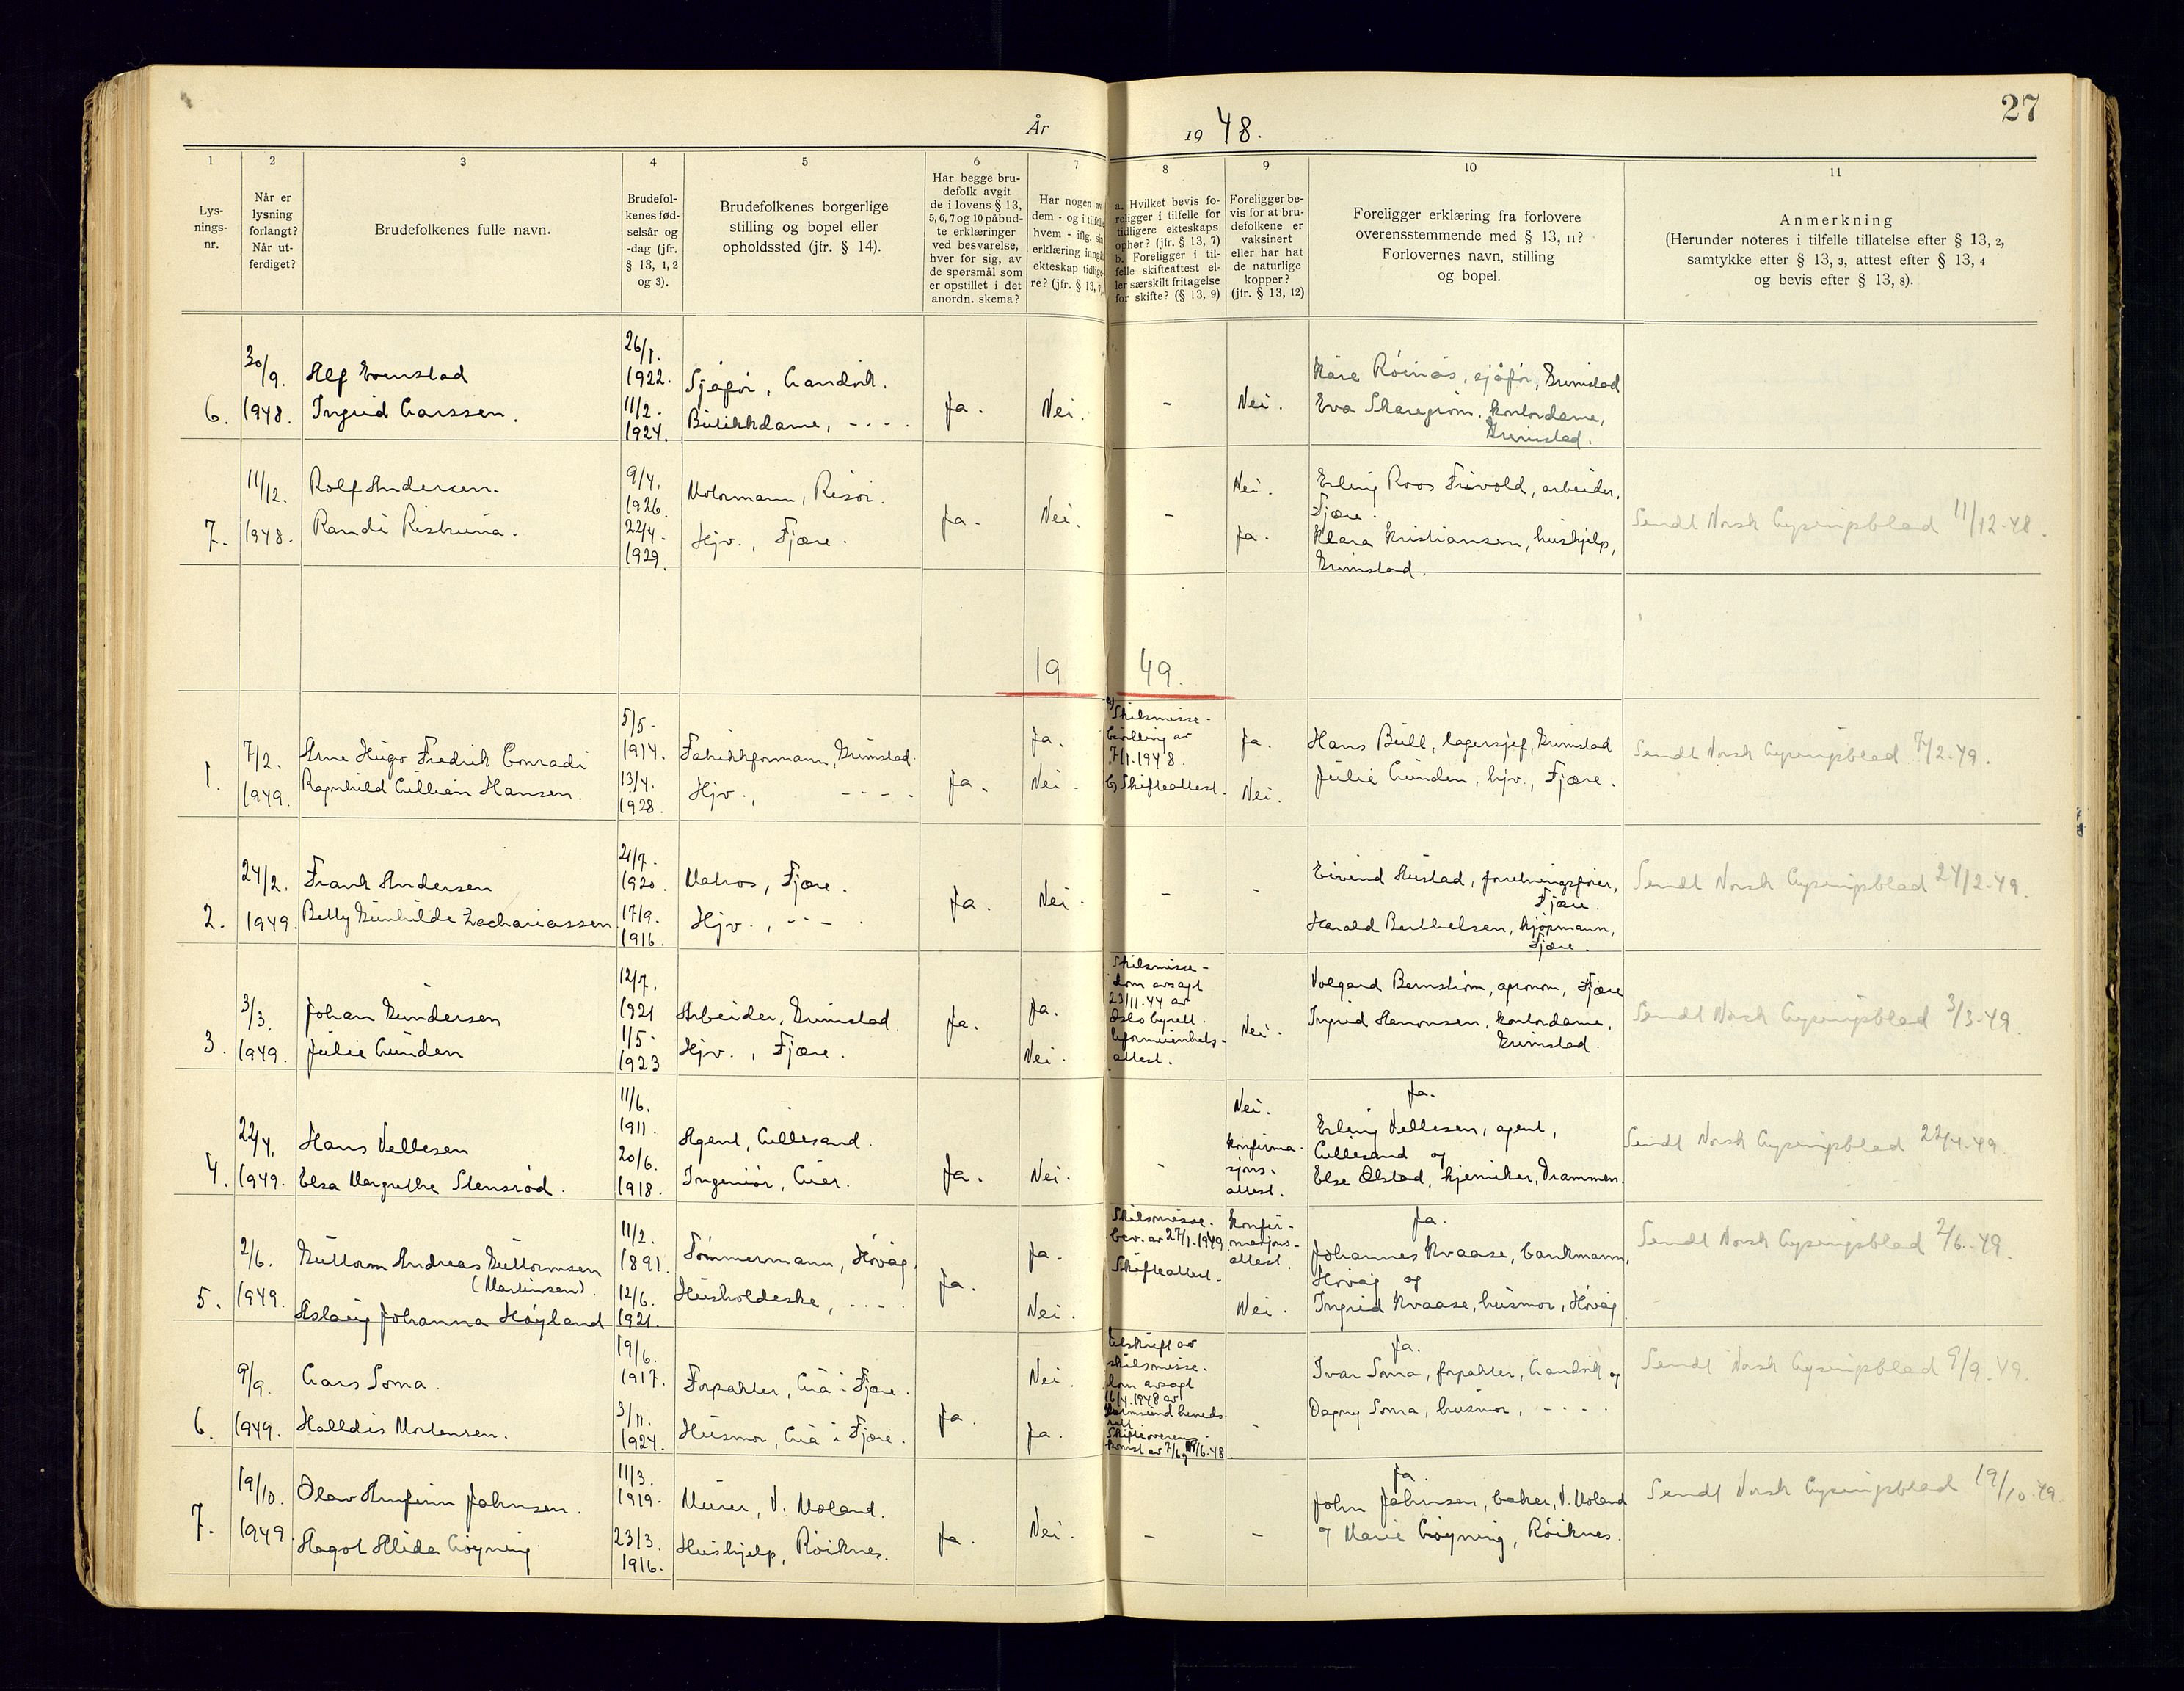 27
År 1948.
1 2 3 4 5 6 7 8 9 10 11
Lys-
nings-
nr.
Når er
lysning
forlangt?
Når ut-
ferdiget?
Brudefolkenes fulle navn.
Brudefol-
kenes fød-
selsår og
-dag (jfr.
§ 13, 1, 2
og 3).
Brudefolkenes borgerlige
stilling og bopel eller
opholdssted (jfr. § 14).
Har begge bru-
defolk avgit
de i lovens § 13,
5, 6, 7 og 10 påbud-
te erklæringer
ved besvarelse,
hver for sig, av
de spørsmål som
er opstillet i det
anordn. skema?
Har nogen av
dem - og i tilfelle
hvem - iflg. sin
erklæring inngått
ekteskap tidlige-
re? (jfr. § 13, 7)
a. Hvilket bevis fo-
religger i tilfelle for
tidligere ekteskaps
ophør? (jfr. § 13, 7)
b. Foreligger i til-
felle skifteattest el-
ler særskilt fritagelse
for skifte? (§ 13, 9)
Foreligger be-
vis for at bru-
defolkene er
vaksinert
eller har hat
de naturlige
kopper?
(jfr. § 13, 12)
Foreligger erklæring fra forlovere
overensstemmende med § 13, 11?
Forlovernes navn, stilling
og bopel.
Anmerkning
(Herunder noteres i tilfelle tillatelse efter § 13, 2,
samtykke efter § 13, 3, attest efter § 13, 4
og bevis efter § 13, 8).
6.
30/9.
1948.
Alf
Ingrid Larssen.
26/1.
1922.
11/2.
1924.
Sjåfør, Landvik.
Butikkdame, - - - .
Ja.
Nei.
-
Nei.
Kåre Róinás, sjåfór, Grimstad
Eva Skaregrøm, kontordame,
Grimstad.
7.
11/12.
1948.
Rolf Andersen.
Randi
9/4.
1926.
22/4.
1929.
Motormann, Risór.
Hjv., Fjære.
Ja.
Nei.
-
Nei.
Ja.
Erling Roos Frivold, arbeider,
Fjære.
Klara Kristiansen, hushjelp,
Grimstad.
Sendt Norsk Lysingsblad 11/12-48.
1949.
1.
7/2.
1949.
Arne Hugo Fredrik Conradi
Ragnhild Lillian Hansen.
5/5-
1914.
13/4.
1928.
Fabrikkformann, Grimstad.
Hjv., - - - -
Ja.
Ja.
Nei.
a) Skilsmisse-
bevilling av
7/1.1948.
b) Skifteattest.
Ja.
Nei.
Hans Bull, lagersjef, Grimstad
Julie Lunden, hjv., Fjære.
Sendt Norsk Lysingsblad 7/2-49.
2.
24/2.
1949.
Frank Andersen
Betty Gunhilde Zachariassen
21/7.
1920.
17/9.
1916.
Matros, Fjære.
Hjv., - - - .
Ja.
Nei.
-
-
Eivind Hustad, forretningsfører,
Fjære.
Harald Berthelsen, kjøpmann,
Fjære.
Sendt Norsk Lysingsblad 24/2-49.
3.
3/3.
1949.
Johan Gundersen
Julie Lunden
12/7.
1921
1/5-
1923
Arbeider, Grimstad.
Hjv., Fjære.
Ja.
Ja.
Nei.
Skilsmisse-
dom avsagt
23/11.44 av
Oslo byrett.
Uformuenhets-
attest.
Nei.
Volgard Bernstrøm, agronom, Fjære
Ingrid Hanonsen, kontordame,
Grimstad.
Sendt Norsk Lysingsblad 3/3-49.
4.
22/4.
1949.
Hans Vellesen
Elsa Margrethe Stensrød.
11/6.
1911.
20/6.
1918.
Agent, Lillesand.
Ingeniór, Lier.
Ja.
Nei.
-
Nei.
Konfirma-
sjons-
attest.
Ja.
Erling Vellesen, agent,
Lillesand og
Else Ølstad, kjemiker, Drammen.
Sendt Norsk Lysingsblad 22/4-49.
5.
2/6.
1949.
Guttorm Andreas Guttormsen
(Martinsen).
Aslaug Johanna Høyland
11/2.
1891.
12/6.
1921.
Tømmermann, Høvåg.
Husholderske, - - - .
Ja.
Ja.
Nei.
Skilsmisse-
bev. av 27/1.1949
Skifteattest.
Konfir-
masjons-
attest.
Nei.
Ja.
Johannes Kvaase, bankmann,
Høvåg og
Ingrid Kvaase, husmor, Høvåg.
Sendt Norsk Lysingsblad 2/6-49.
6.
9/9.
1949.
Lars Soma.
Halldis Mortensen.
19/6.
1917.
3/11.
1924.
Forpakter, Lia i Fjære.
Husmor, Lia i Fjære.
Ja.
Nei.
Ja.
Utskrift av
skilsmisse-
dom avsagt
16/4.1948 av
Karmsund herreds-
rett.
Skifteoverens-
komst av 7/6 - 6.48
-
Ja.
Ivar Soma, forpakter, Landvik og
Dagny Soma, husmor, - - - .
Sendt Norsk Lysingsblad 9/9-49.
7.
19/10.
1949.
Olav Arnfinn Jahnsen.
Aagot Alida Løgning
11/3.
1919.
23/3.
1916.
Murer, V. Moland.
Hushjelp, Róiknes.
Ja.
Nei.
-
-
Ja.
John Jahnsen, baker, V. Moland
og Marie Løgning, Róiknes.
Sendt Norsk Lysingsblad 19/10-49.